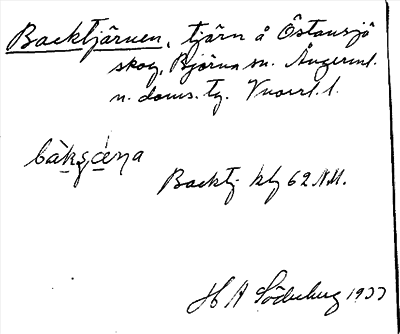 Backtjärnen, tjärn å Östansjö
skog, Björna sn. Ångerml.
n. doms. tg. Vnorrl. l.
bàkʂæ̀ɳa
Backtj. klf 62 N.M.
H A Söderberg 1933